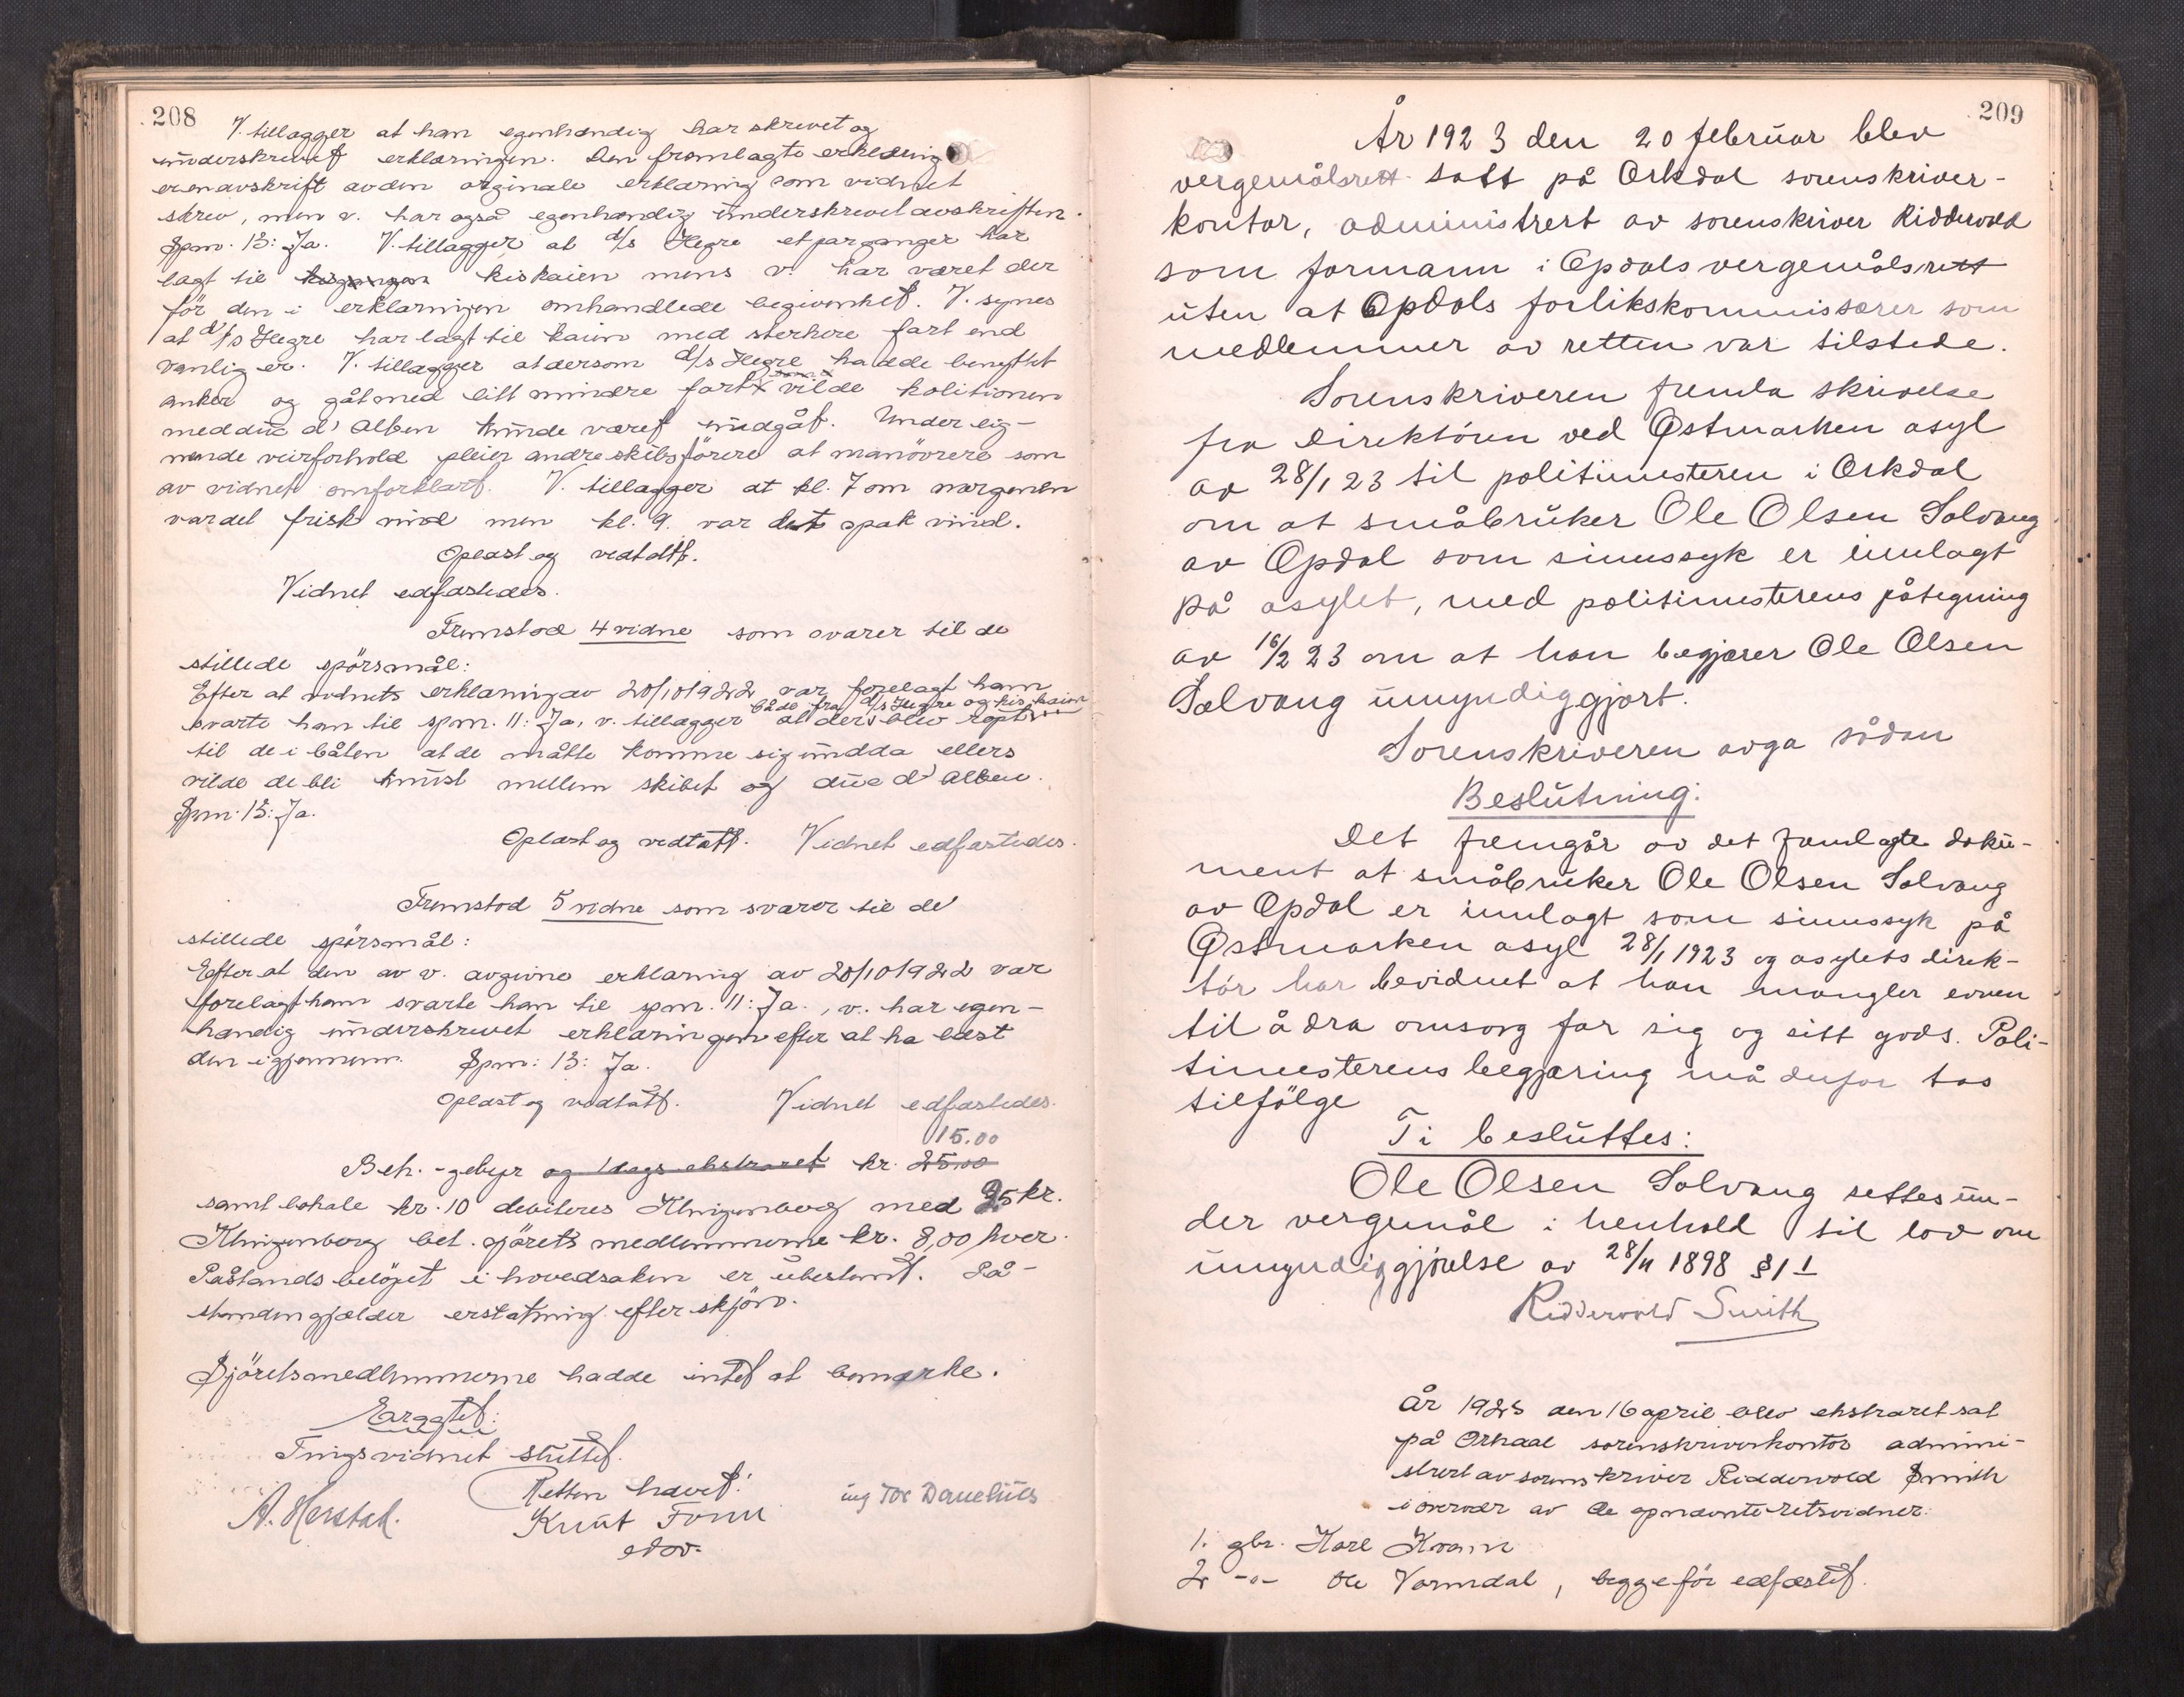 208
V. tillægger at han egenhændig har skrevet og
underskrevet erklæringen. Den fremlagte erklæring
er en avskrift av den orginale erklæring som vidnet
skrev, men v. har også egenhændig underskrevet avskriften.
Spm. 13: Ja. V. tillægger at d/s Hegre et par ganger har
lagt til kiskaien mens v. har været der
før den i erklæringen omhandlede begivenhet. V. synes
at d/s Hegre har lagt til kaien med sterkere fart end
vanlig er. V. tillægger at dersom d/s Hegre hadde benyttet
anker og gåt med litt mindre fart vilde kolitionen
med duc d'Alben kunde været undgåt. Under lig-
nende veirforhold pleier andre skibsførere at manøvrere som
av vidnet omforklart. V. tillægger at kl. 7 om morgenen
var det frisk vind men kl. 9. var det spak vind.
Oplæst og vedtatt.
Vidnet edfæstedes.
Fremstod 4 vidne som svarer til de
stillede spörsmål:
Efter at vidnets erklæring av 20/10 1922 var forelagt ham
både fra d/s Hegre og kiskaien
svarte han til spm. 11: Ja, v. tillægger at der blev ropt
til de i båten at de måtte komme sig undda ellers
vilde de bli knust mellem skibet og duc d'Alben.
Spm. 13: Ja.
Oplæst og vedtatt. Vidnet edfæstedes.
Fremstod 5 vidne som svarer til de
stillede spörsmål:
Efter at den av v. avgivne erklæring av 20/10 1922 var
forelagt ham svarte han til spm. 11: Ja., v. har egen-
hændig underskrevet erklæringen efter at ha læst
den igjennem. Spm: 13: Ja.
Oplæst og vedtatt. Vidnet edfæstedes.
15.00
Beh.-gebyr og 1 dags ekstraret kr. 25.00
samt lokale kr. 10 debiteres Klingenberg med 25 kr.
Klingenberg bet. sjörets medlemmerne kr. 8,00 hver.
Påstands belöpet i hovedsaken er ubestemt. På-
standen gjælder erstatning efter skjön.
Sjöretsmedlemmerne hadde intet at bemerke.
Tingsvidnet sluttet.
Retten hævet.
A. Herstad. Knut Fonn ing Tor Danelius
edsv.
209
År 1923 den 20 februar blev
vergemålsrett satt på Orkdal sorenskriver-
kontor, administrert av sorenskriver Ridderwold
som formann i Opdals vergemålsrett
uten at Opdals forlikskommissærer som
medlemmer av retten var tilstede.
Sorenskriveren fremla skrivelse
fra direktören ved Östmarken asyl
av 28/1 23 til politimesteren i Orkdal
om at småbruker Ole Olsen Solvang
av Opdal som sinnssyk er innlagt
på asylet, med politimesterens påtegning
av 16/2 23 om at han begjærer Ole Olsen
Solvang umyndiggjort.
Sorenskriveren avga sådan
Beslutning:
Det fremgår av det fremlagte doku-
ment at småbruker Ole Olsen Solvang
av Opdal er innlagt som sinnssyk på
Östmarken asyl 28/1 1923 og asylets direk-
tör har bevidnet at han mangler evnen
til å dra omsorg for sig og sitt gods. Poli-
timesterens begjæring må derfor tas
tilfölge
Ti besluttes:
Ole Olsen Solvang settes un-
der vergemål i henhold til lov om
umyndiggjörelse av 28/11 1898 § 1 1
Ridderwold Smith
År 1923 den 16 april blev ekstraret sat
på Orkdal sorenskriverkontor admini-
strert av sorenskriver Ridderwold Smith
i overvær av de opnævnte retsvidner:
1. gbr. Karl Kvam
2 -"- Ole Vormdal, begge før edfæstet.